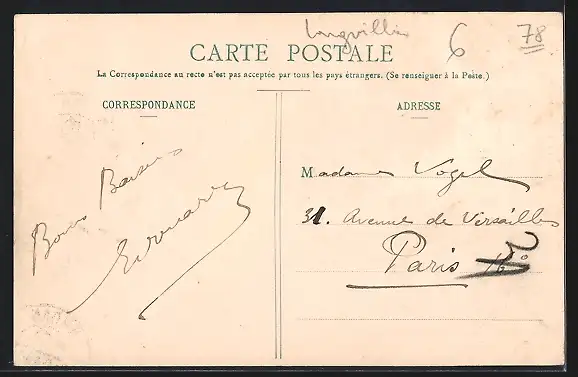 6
78
CARTE POSTALE
La Correspondance au recto n'est pas acceptée par tous les pays étrangers. (Se renseigner à la Poste.)
CORRESPONDANCE
ADRESSE
Bons Baisers
Madame Vogel
31. Avenue de Versailles
Paris 16e